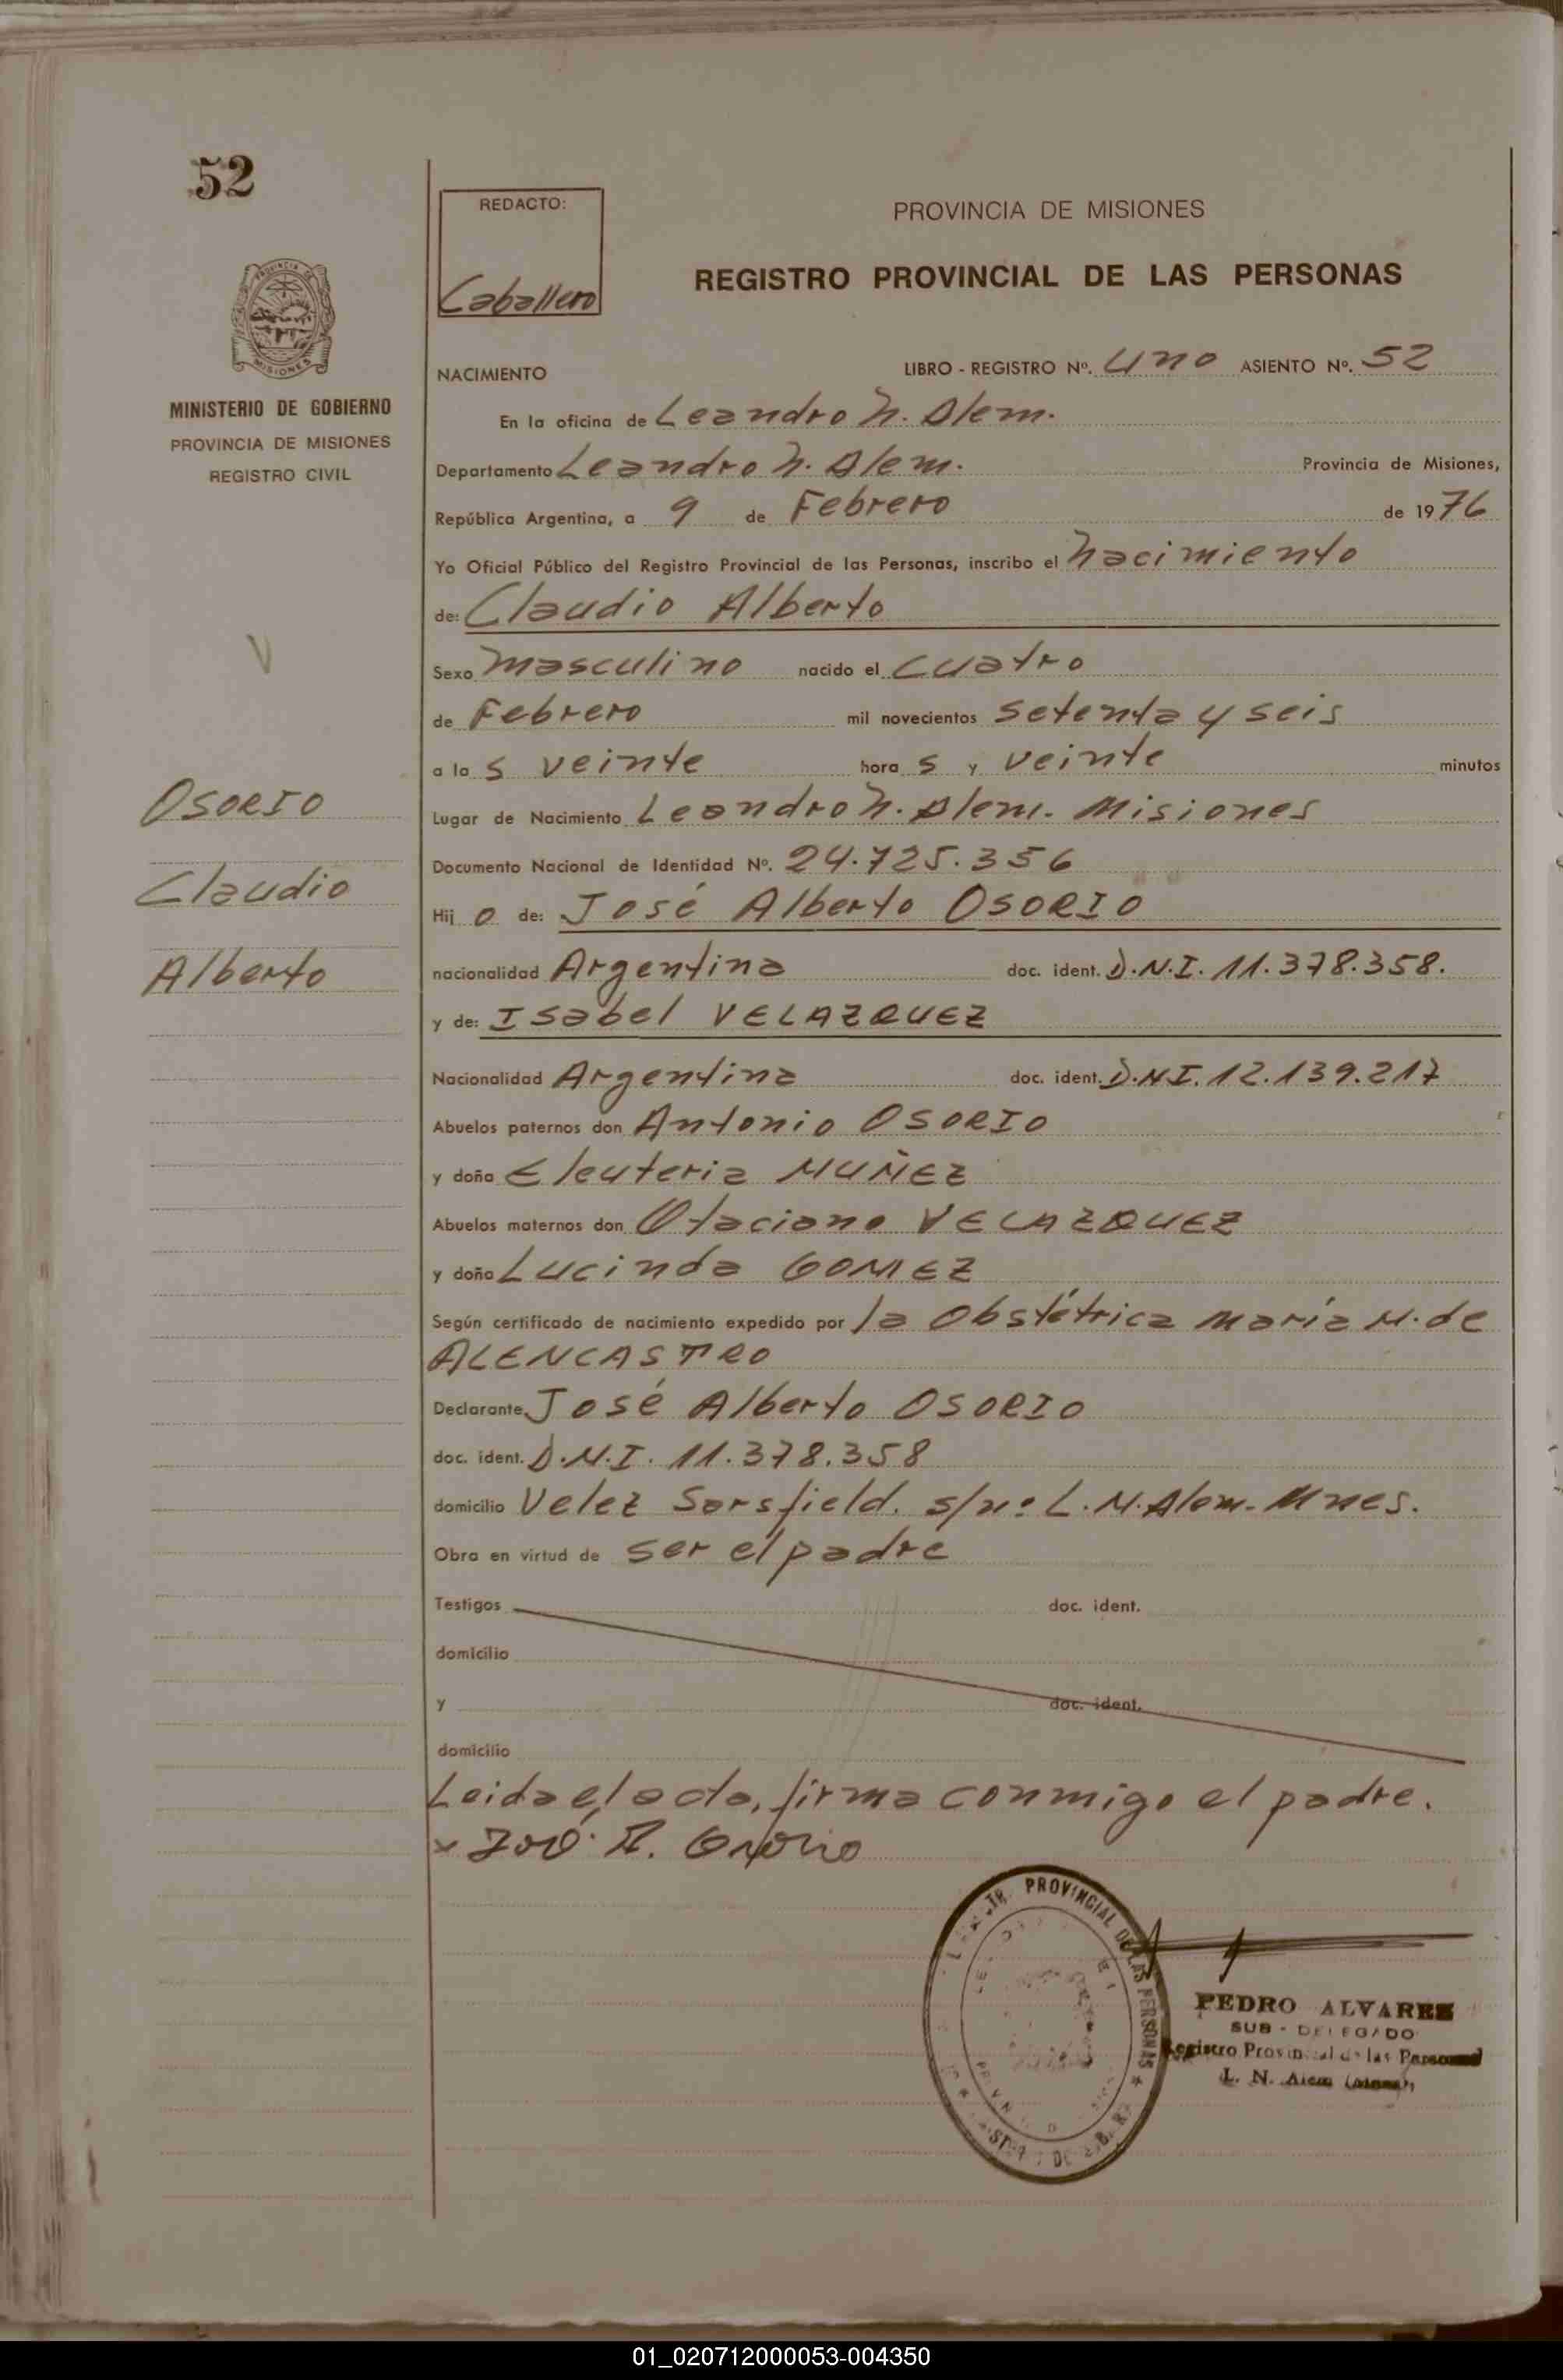 52
REDACTO:
Caballero
PROVINCIA DE MISIONES
REGISTRO PROVINCIAL DE LAS PERSONAS
PROVINCIA DE
MISIONES
MINISTERIO DE GOBIERNO
PROVINCIA DE MISIONES
REGISTRO CIVIL
OSORIO
Claudio
Alberto
NACIMIENTO LIBRO - REGISTRO Nº. Uno ASIENTO Nº. 52
En la oficina de Leandro N. Alem.
Departamento Leandro N. Alem. Provincia de Misiones,
República Argentina, a 9 de Febrero de 1976
Yo Oficial Público del Registro Provincial de las Personas, inscribo el nacimiento
de: Claudio Alberto
Sexo masculino nacido el cuatro
de Febrero mil novecientos setenta y seis
a la s veinte hora s y veinte minutos
Lugar de Nacimiento Leandro N. Alem. Misiones
Documento Nacional de Identidad Nº. 24.725.356
Hij o de: José Alberto OSORIO
nacionalidad Argentina doc. ident. D.N.I. 11.378.358.
y de: Isabel VELAZQUEZ
Nacionalidad Argentina doc. ident. D.N.I. 12.139.217
Abuelos paternos don Antonio OSORIO
y doña Eleuteria MUÑEZ
Abuelos maternos don Otaciano VELAZQUEZ
y doña Lucinda GOMEZ
Según certificado de nacimiento expedido por la Obstétrica María M. de
ALENCASTRO
Declarante José Alberto OSORIO
doc. ident. D.N.I. 11.378.358
domicilio Velez Sarsfield. s/nº L.N. Alem. Mnes.
Obra en virtud de ser el padre
Testigos doc. ident.
domicilio
y doc. ident.
domicilio
Leida el acta, firma conmigo el padre.
x José A. Osorio
PROVINCIAL DE LAS PERSONAS
PEDRO ALVAREZ
SUB - DELEGADO
Registro Provincial de las Personas
L. N. Alem
01_020712000053-004350